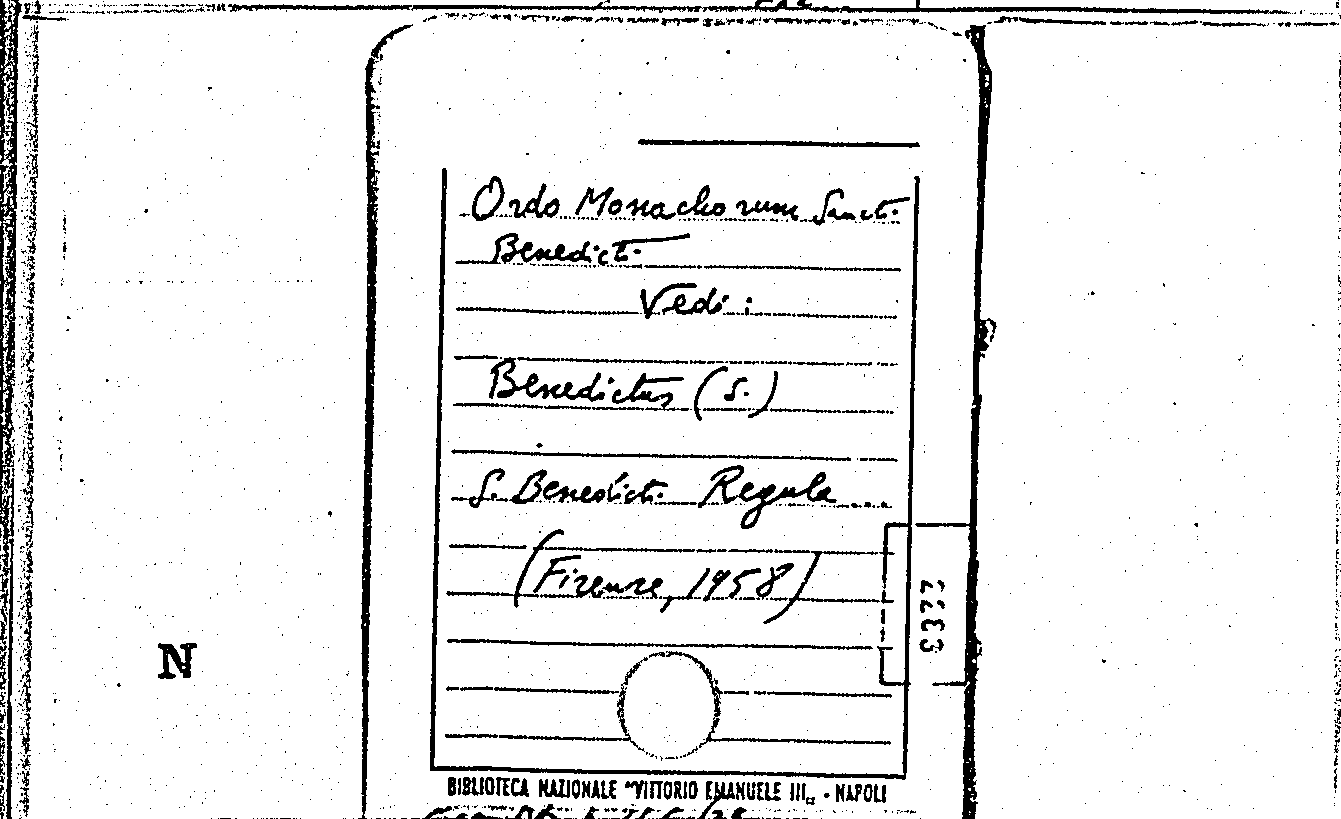 Ordo Monachorum Sancti
Benedicti
Vedi:
Benedictus (S.)
S. Benedicti Regula...
(Firenze, 1958)
N
BIBLIOTECA NAZIONALE "VITTORIO EMANUELE III„ - NAPOLI